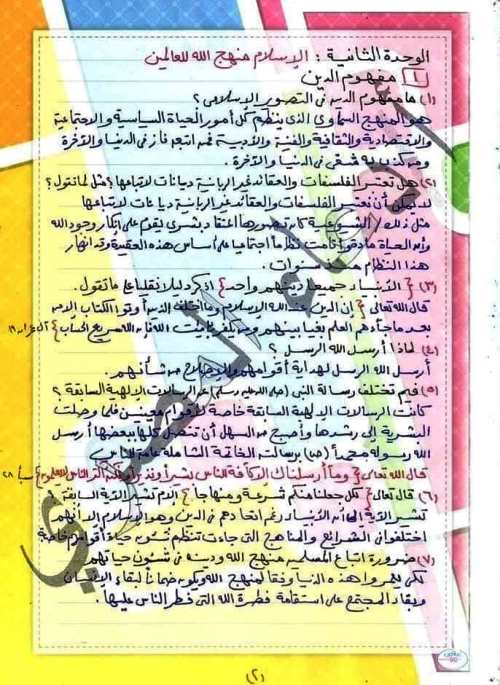 الوحدة الثانية : الإسلام منهج الله للعالمين
١ مفهوم الدين
(١) ما مفهوم الدين في التصور الإسلامي ؟
هو المنهج السماوي الذي ينظم كل أمور الحياة السياسية والاجتماعية
والاقتصادية والثقافية والفنية والأدبية فمن اتبعه فاز في الدنيا والآخرة
ومن كذب به شقى في الدنيا والآخرة .
(٢) هل تعتبر الفلسفات والعقائد غير الربانية ديانات لأتباعها ؟ مثل لما تقول ؟
لا يمكن أن تعتبر الفلسفات والعقائد غير الربانية ديانات لأتباعها
مثل ذلك / الشيوعية كان تصورها اعتقاد بشرى يقوم على إنكار وجود الله
وأن الحياة مادة وأقامت نظاماً اجتماعيا على أساس هذه العقيدة وقد انهار
هذا النظام سنوات .
(٣) { الأنبياء جميعا دينهم واحد } اذكر دليلا نقليا على ما تقول .
قال الله تعالى { إن الدين عند الله الإسلام وما اختلف الذين أوتوا الكتاب إلا من
بعد ما جاءهم العلم بغيا بينهم ومن يكفر بآيات الله فإن الله سريع الحساب } آل عمران ١٩
(٤) لماذا أرسل الله الرسل ؟
أرسل الله الرسل لهداية أقوامهم والإصلاح من شأنهم .
(٥) فيم تختلف رسالة النبي (صلى الله عليه وسلم) عن الرسالات الإلهية السابقة ؟
كانت الرسالات الإلهية السابقة خاصة لأقوام معينين فلما وصلت
البشرية إلى رشدها وأصبح من السهل أن تتصل كلها ببعضها أرسل
الله رسوله محمداً (ص) برسالته الخاتمة الشاملة عامة للناس
قال الله تعالى { وما أرسلناك إلا كافة للناس بشيراً ونذيراً ولكن أكثر الناس لا يعلمون } سبأ ٢٨
(٦) قال تعالى { لكل جعلنا منكم شرعة ومنهاجا } إلام تشير الآية السابقة ؟
تشير الآية إلى أنه الأنبياء رغم اتحادهم في الدين وهو الإسلام إلا أنهم
اختلفوا في الشرائع والمناهج التي جاءت لتنظيم شئون حياة أقوامهم خاصة
(٧) ضرورة اتباع المسلمين منهج الله ودينه في شئون حياتهم
لكي يعمروا هذه الدنيا وفقا لمنهج الله ويكون ضماناً لبقاء الإنسان
وبقاء المجتمع على استقامة فطرة الله التي فطر الناس عليها .
(٢)